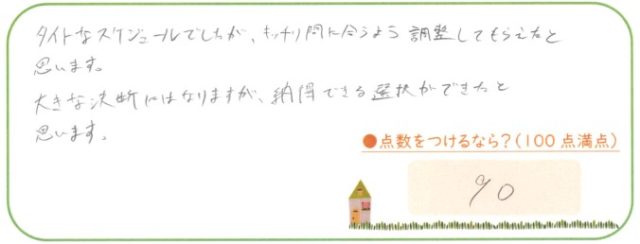 タイトなスケジュールでしたが、キッチリ間に合うよう調整してもらえたと
思います。
大きな決断にはなりますが、納得できる選択ができたと
思います。
●点数をつけるなら？(100点満点)
90